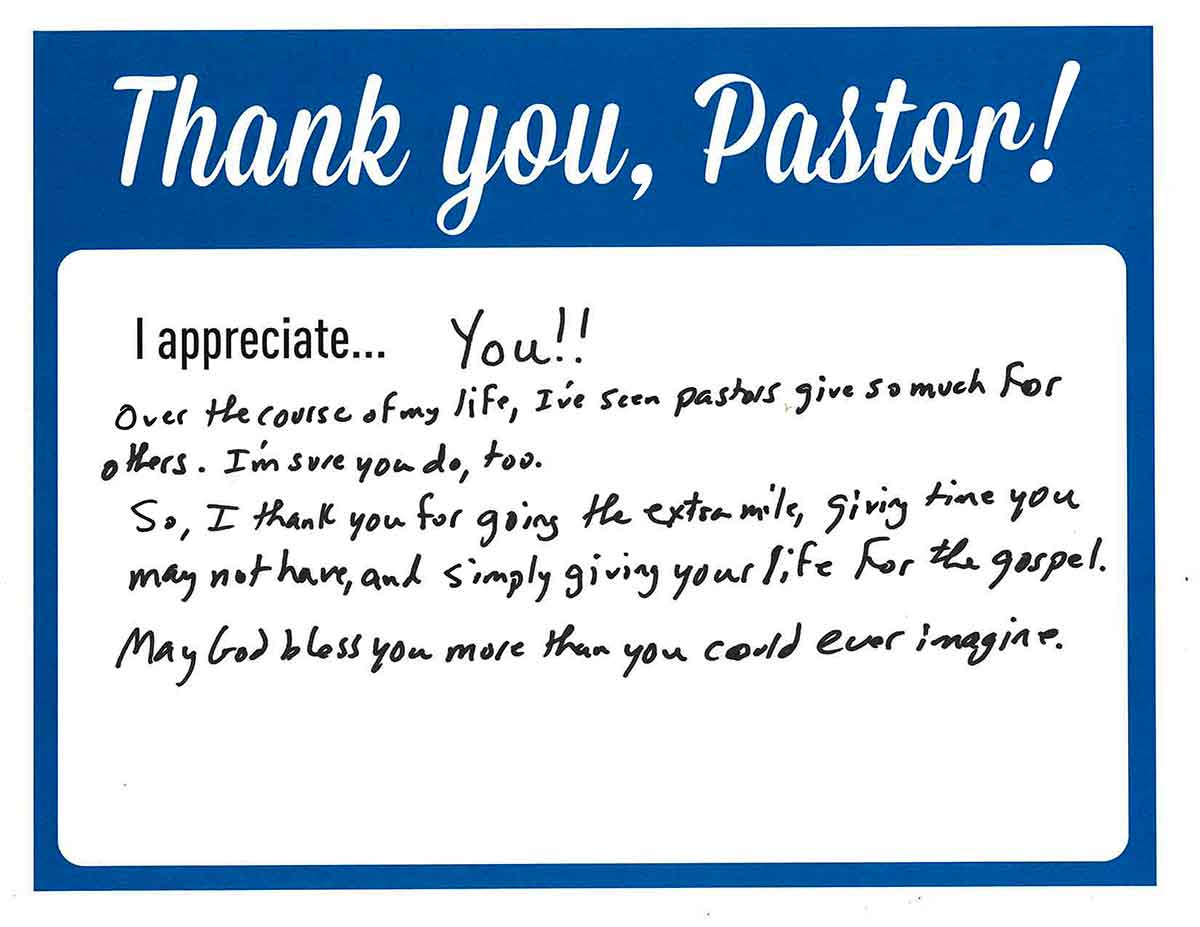 Thank you, Pastor!
I appreciate... You!!
Over the course of my life, I've seen pastors give so much for
others. I'm sure you do, too.
So, I thank you for going the extra mile, giving time you
may not have, and simply giving your life for the gospel.
May God bless you more than you could ever imagine.